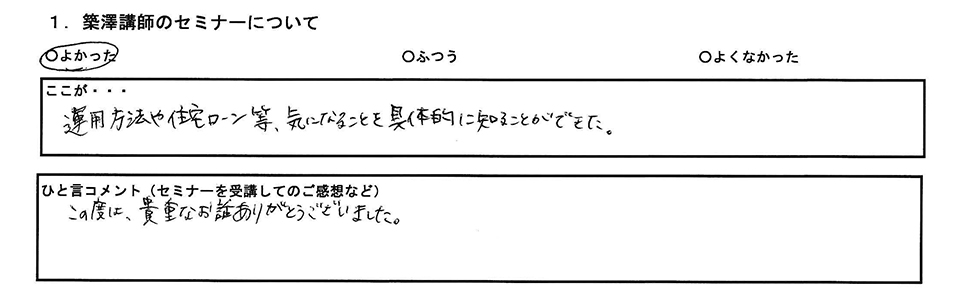 1．築澤講師のセミナーについて
○よかった ○ふつう ○よくなかった
ここが・・・
運用方法や住宅ローン等、気になることを具体的に知ることができた。
ひと言コメント（セミナーを受講してのご感想など）
この度は、貴重なお話ありがとうございました。